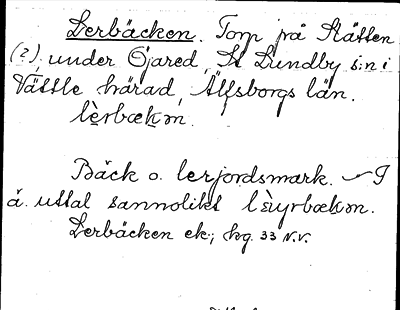 Lerbäcken. Torp på Slätten
(?), under Öjared, St Lundby s:n i
Vättle härad, Älfsborgs län.
lèrbækɷn.
Bäck o. lerjordsmark. – I
ä. uttal sannolikt lèɩyrbækɷn.
Lerbäcken ek., hg. 33 N.V.